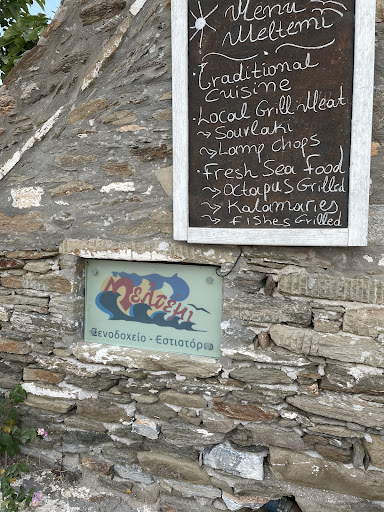 Menu
Meltemi
• Traditional
Cuisine
• Local Grill Meat
→ Souvlaki
→ Lamp chops
• Fresh Sea Food
→ Octapus Grilled
→ Kalamaries
→ Fishes Grilled
Μελτεμι
Ξενοδοχείο - Εστιατόριο